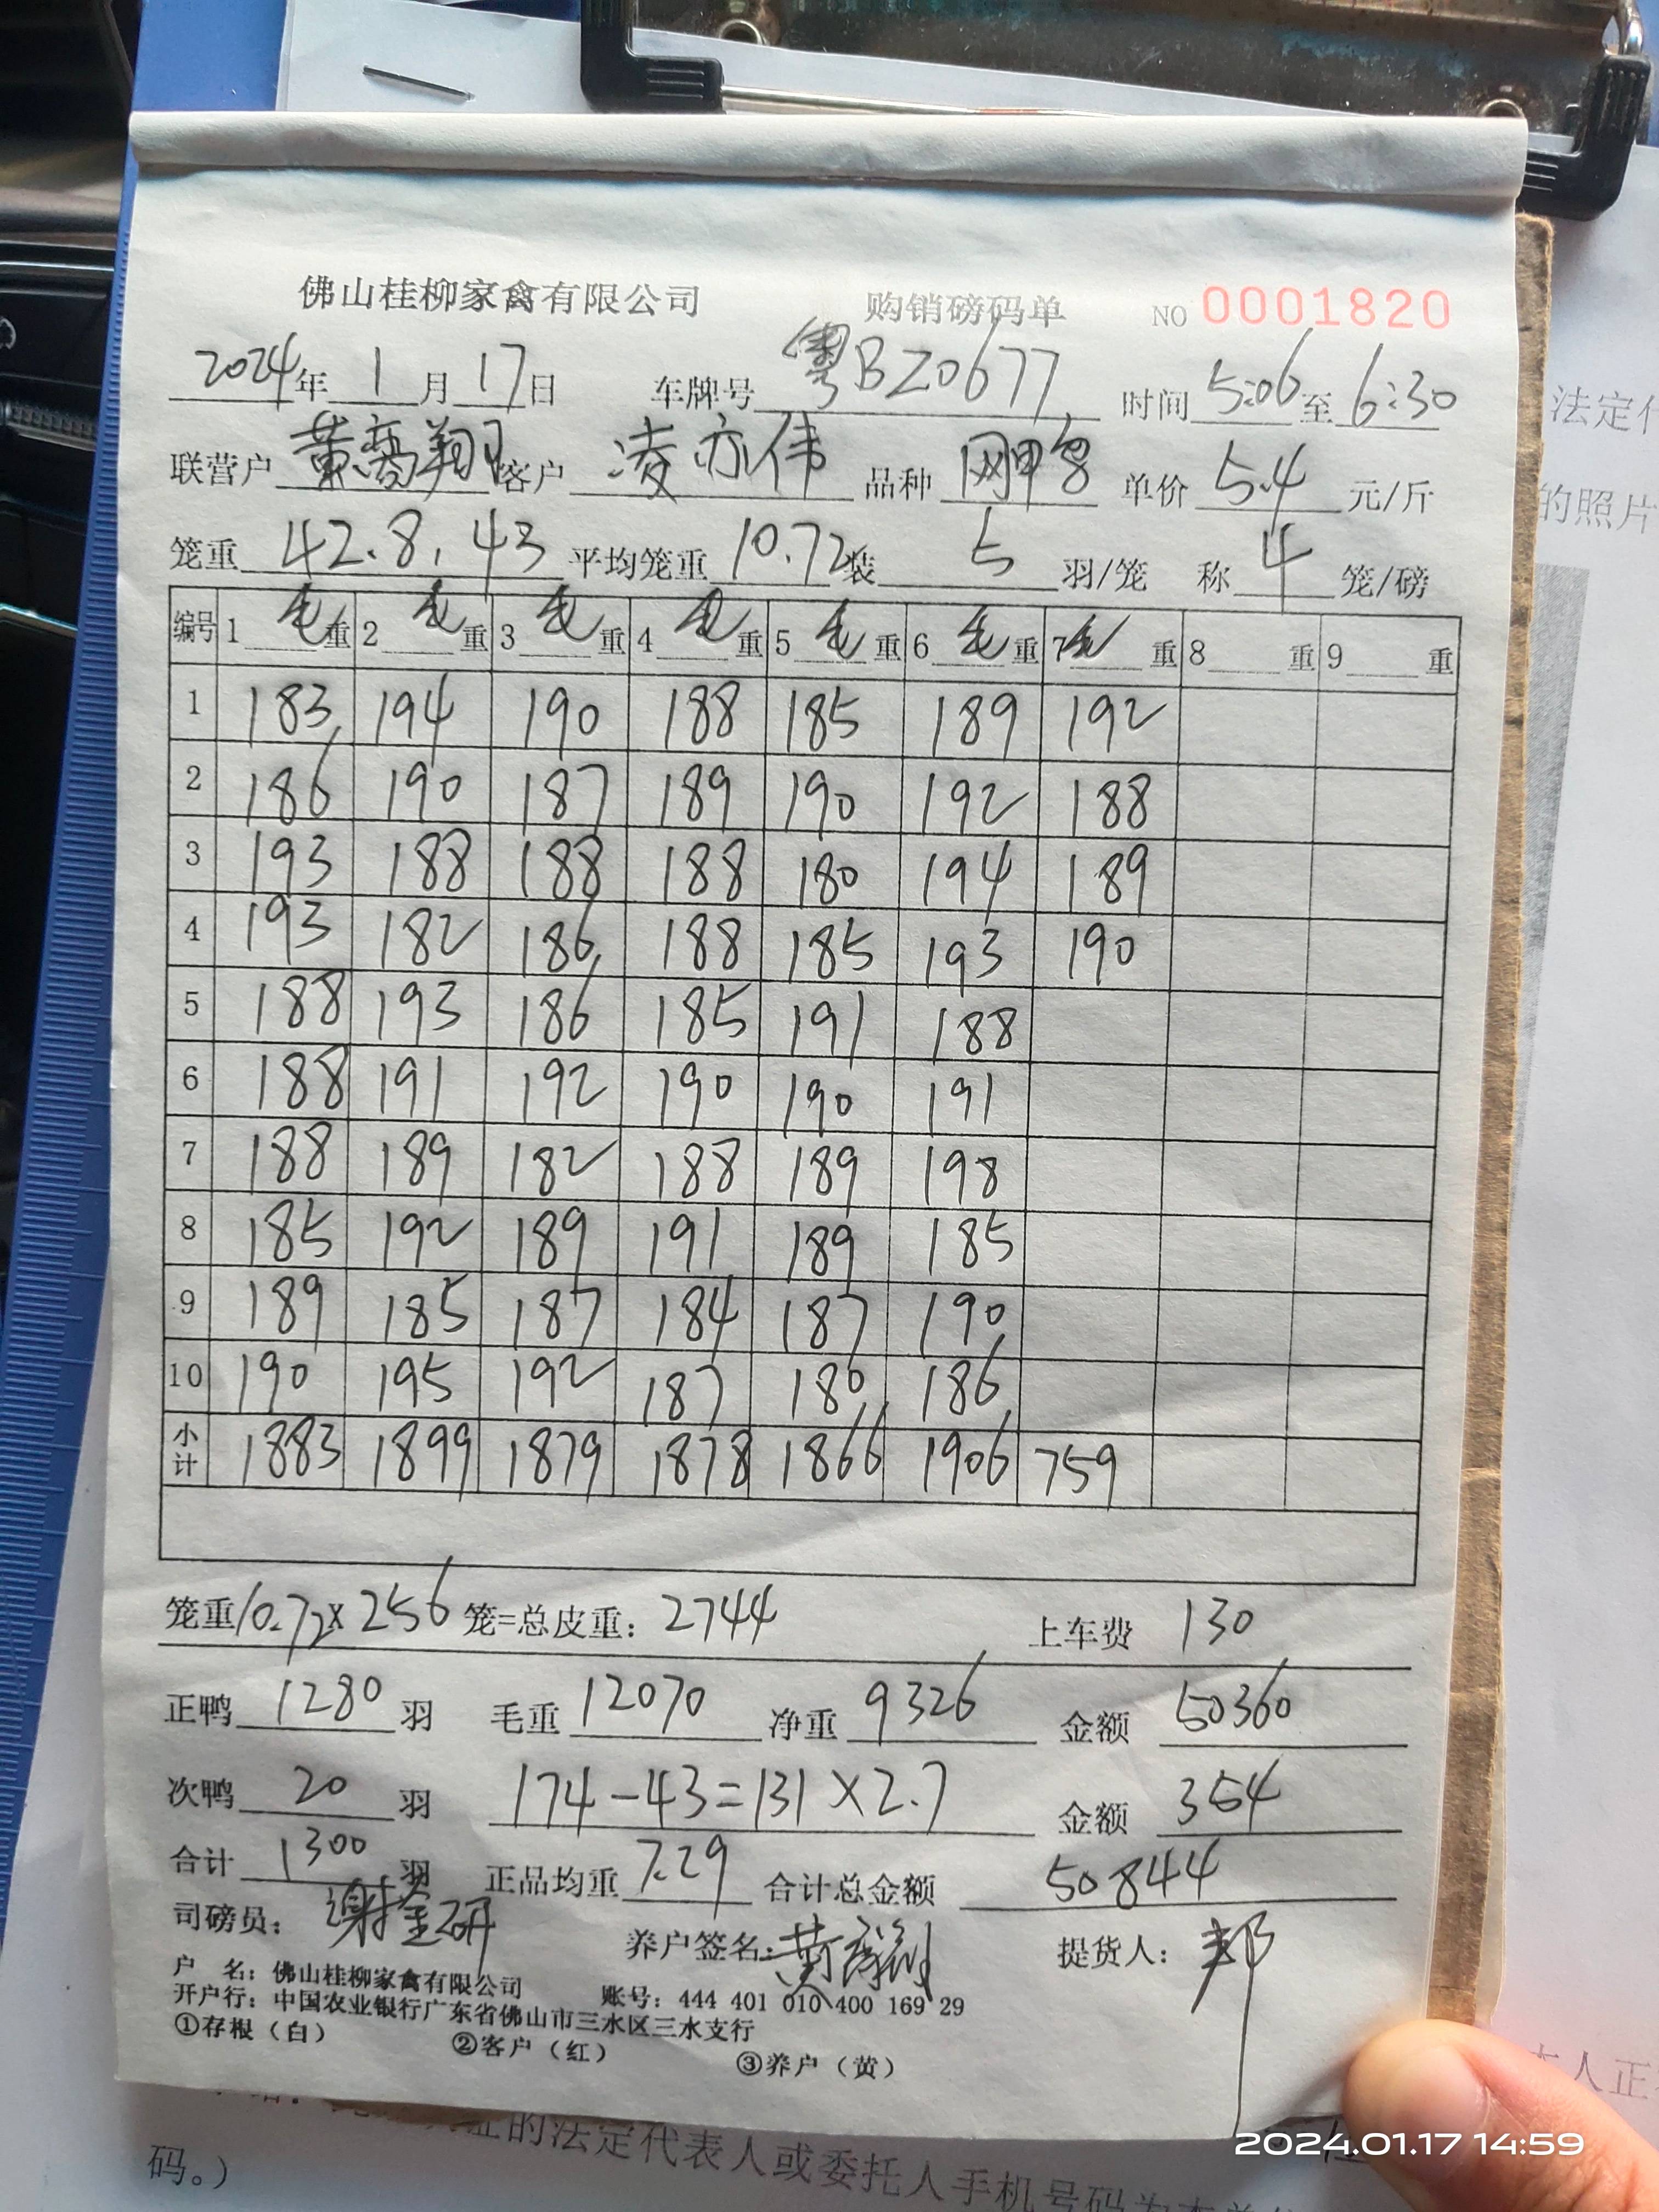 佛山桂柳家禽有限公司 购销磅码单 NO 0001820
2024年 1月 17日 车牌号 粤BZ0677 时间 5:06 至 6:30
联营户 黄乔翔 客户 凌亦伟 品种 单价 5.4 元/斤
笼重 42.8, 43 平均笼重 10.72 装 5 羽/笼 称 4 笼/磅
编号 1 毛重 2 毛重 3 毛重 4 毛重 5 毛重 6 毛重 7 毛重 8 重 9 重
1 183 194 190 188 185 189 192
2 186 190 187 189 190 192 188
3 193 188 188 188 180 194 189
4 193 182 186 188 185 193 190
5 188 193 186 185 191 188
6 188 191 192 190 190 191
7 188 189 182 188 189 198
8 185 192 189 191 189 185
9 189 185 187 184 187 190
10 190 195 192 187 180 186
小计 1883 1899 1879 1878 1866 1906 759
笼重 10.72 x 256 笼=总皮重: 2744 上车费 130
正鸭 1280 羽 毛重 12070 净重 9326 金额 50360
次鸭 20 羽 174-43=131×2.7 金额 354
合计 1300 羽 正品均重 7.29 合计总金额 50844
司磅员: 养户签名: 提货人:
户 名: 佛山桂柳家禽有限公司 账号: 444 401 010 400 169 29
开户行: 中国农业银行广东省佛山市三水区三水支行
①存根(白) ②客户(红) ③养户(黄)
法定代
的照片
的法定代表人或委托人手机号码为本
码。)
2024.01.17 14:59